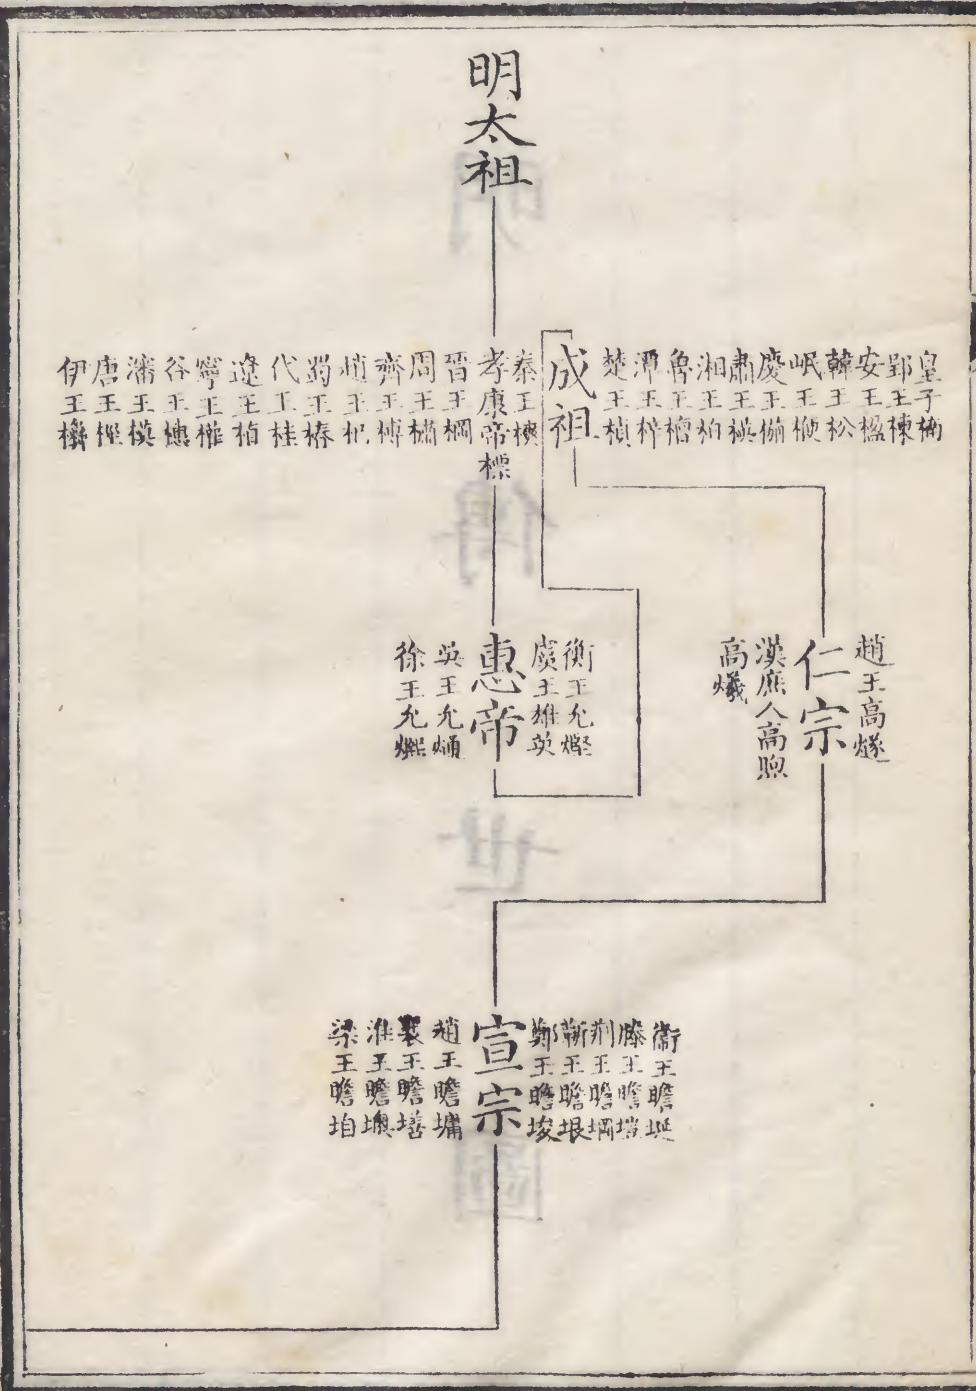 明太祖
皇子楠
郢王棟
安王楹
韓王松
岷王楩
慶王㮵
肅王楧
湘王柏
魯王檀
潭王梓
楚王楨
成祖
秦王樉
孝康帝標
晉王棡
周王橚
齊王榑
趙王杞
蜀王椿
代王桂
遼王植
寧王權
谷王橞
瀋王模
唐王桱
伊王㰘
趙王高燧
仁宗
漢庶人高煦
高爔
衡王允熞
虞王雄英
惠帝
吳王允熥
徐王允𤐤
衞王瞻埏
滕王瞻塏
荆王瞻堈
蘄王瞻垠
鄭王瞻埈
宣宗
趙王瞻墉
襄王瞻墡
淮王瞻墺
梁王瞻垍